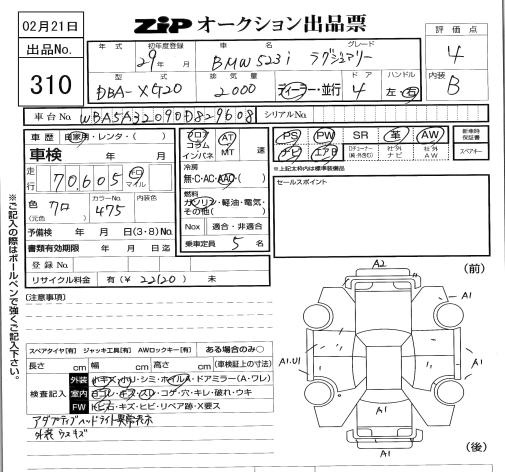 02月21日
ZiP オークション出品票
出品No.
310
年 式
初年度登録
車 名
グレード
評 価 点
29年 月
BMW523i
ラグジュアリー
4
型 式
排 気 量
ドア
ハンドル
内装
DBA-XG20
2000
ディーラー・並行
4
左・右
B
車 台 No.
WBA5A32090D829608
シリアルNo.
車 歴
自家用・レンタ・( )
フロア
コラム
インパネ
AT
MT
速
PS
PW
SR
革
AW
新車時
保証書
車検
年 月
ナビ
エアB
社外
ナビ
社外
AW
スペアキー
※上記太枠内は標準装備品
走行
70,605
キロ
マイル
冷房
無・C・AC・AAC・( )
セールスポイント
色
(元色)
クロ
カラーNo.
475
内装色
燃料
ガソリン・軽油・電気・
その他( )
予備検 年 月 日(3・8)No.
Nox
適合・非適合
書類有効期限 年 月 日迄
乗車定員
5 名
登 録 No.
リサイクル料金 有(¥ 22120 ) 未
(注意事項)
※ご記入の際はボールペンで強くご記入下さい。
A2
(前)
A1
A1.U1
A1
A1
A1
(後)
スペアタイヤ[有] ジャッキ工具[有] AWロックキー[有] ある場合のみ○
長さ cm 幅 cm 高さ cm (車検証上の寸法)
検査記入
外装
小キズ・小U・シミ・ホイルA・ドアミラー(A・ワレ)
室内
ヨゴレ・キズ・スレ・コゲ・穴・キレ・破れ・ウキ
FW
トビ石・キズ・ヒビ・リペア跡・X要ス
アダプティブヘッドライト異常表示
外装 ウスキズ